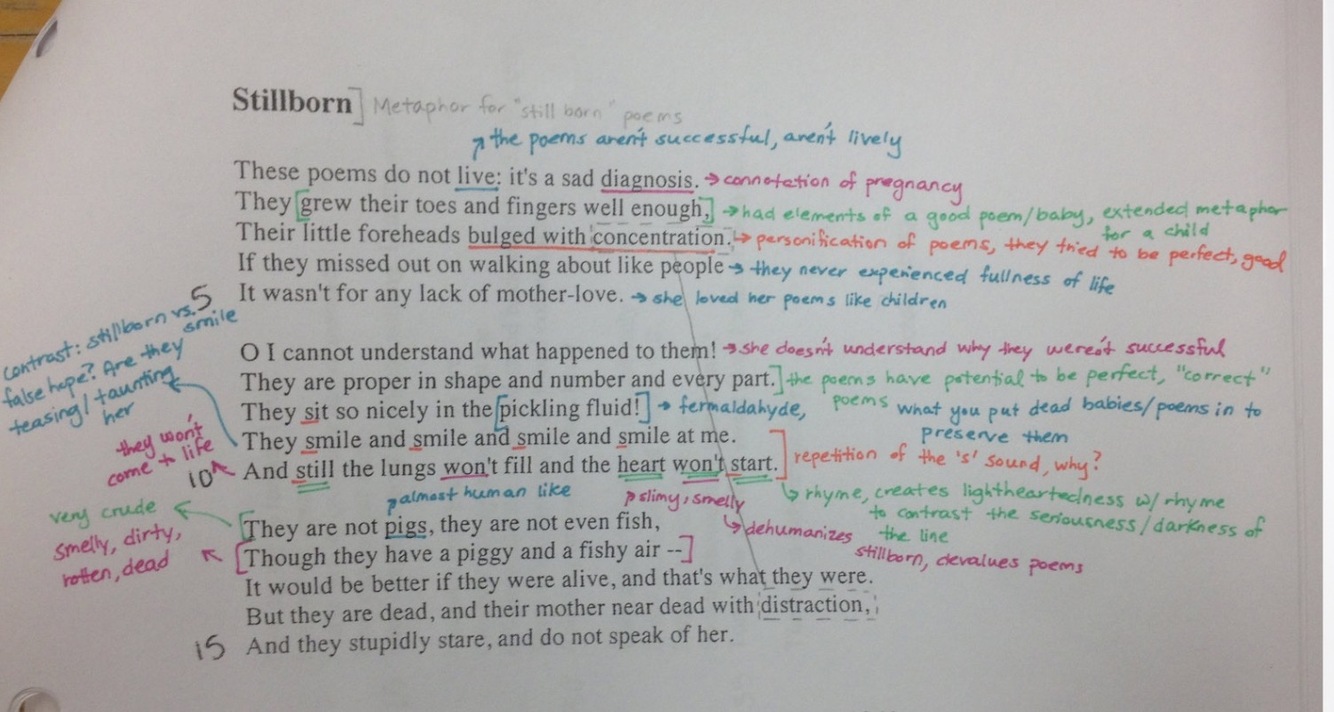 Stillborn] Metaphor for "still born" poems
↗ the poems aren't successful, aren't lively
These poems do not live: it's a sad diagnosis. → connotation of pregnancy
They [grew their toes and fingers well enough,] → had elements of a good poem/baby, extended metaphor
for a child
Their little foreheads bulged with concentration. → personification of poems, they tried to be perfect, good
If they missed out on walking about like people → they never experienced fullness of life
5 It wasn't for any lack of mother-love. → she loved her poems like children
contrast: stillborn vs.
smile
false hope? Are they
teasing/taunting
her
O I cannot understand what happened to them! → she doesn't understand why they weren't successful
They are proper in shape and number and every part.] the poems have potential to be perfect, "correct"
poems
They sit so nicely in the [pickling fluid!] → fermaldahyde, what you put dead babies/poems in to
preserve them
They smile and smile and smile and smile at me.
they won't
come to life
10 And still the lungs won't fill and the heart won't start.] repetition of the 's' sound, why?
↗ almost human like
↗ slimy, smelly
↳ rhyme, creates lightheartedness w/ rhyme
to contrast the seriousness/darkness of
the line
very crude
[They are not pigs, they are not even fish,
↳ dehumanizes
stillborn, devalues poems
smelly, dirty,
rotten, dead
[Though they have a piggy and a fishy air --]
It would be better if they were alive, and that's what they were.
But they are dead, and their mother near dead with distraction,
15 And they stupidly stare, and do not speak of her.